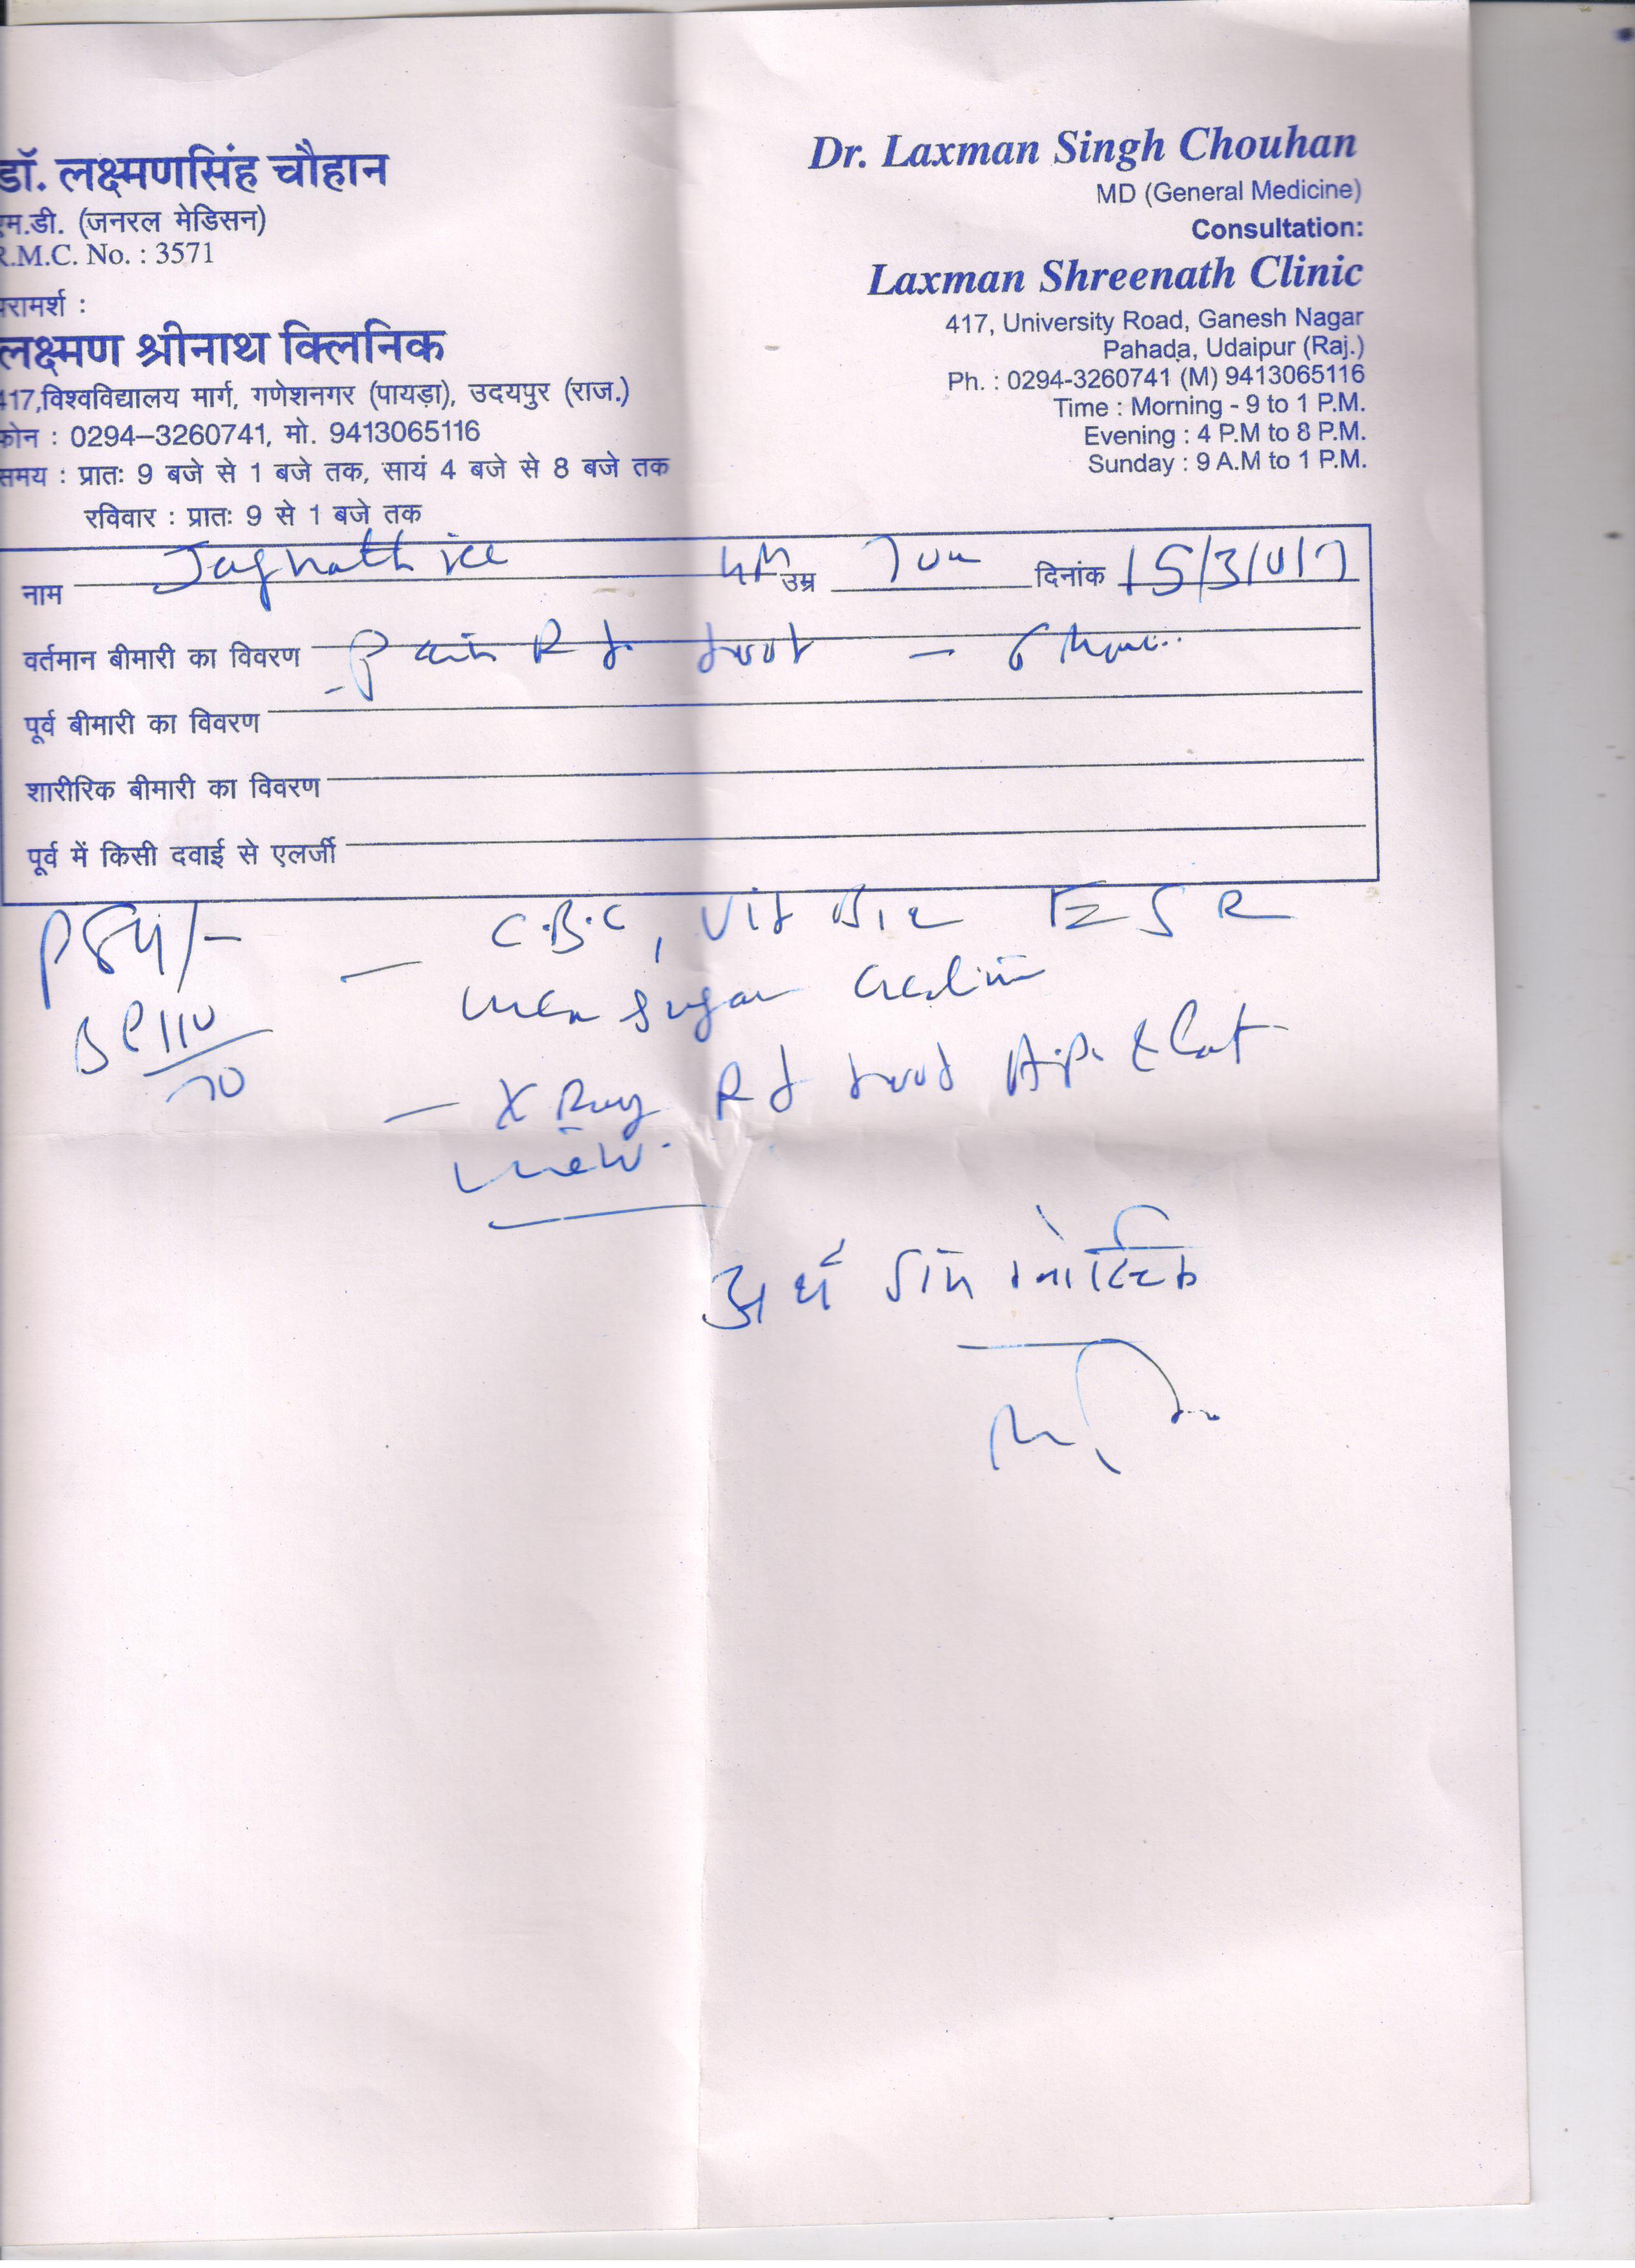 डॉ. लक्ष्मणसिंह चौहान
एम.डी. (जनरल मेडिसन)
R.M.C. No. : 3571
परामर्श :
लक्ष्मण श्रीनाथ क्लिनिक
417,विश्वविद्यालय मार्ग, गणेशनगर (पायड़ा), उदयपुर (राज.)
फोन : 0294-3260741, मो. 9413065116
समय : प्रातः 9 बजे से 1 बजे तक, सायं 4 बजे से 8 बजे तक
रविवार : प्रातः 9 से 1 बजे तक
Dr. Laxman Singh Chouhan
MD (General Medicine)
Consultation:
Laxman Shreenath Clinic
417, University Road, Ganesh Nagar
Pahada, Udaipur (Raj.)
Ph. : 0294-3260741 (M) 9413065116
Time : Morning - 9 to 1 P.M.
Evening : 4 P.M to 8 P.M.
Sunday : 9 A.M to 1 P.M.
नाम उम्र दिनांक 15/3/017
वर्तमान बीमारी का विवरण Pain Rt. foot - 6
पूर्व बीमारी का विवरण
शारीरिक बीमारी का विवरण
पूर्व में किसी दवाई से एलर्जी
P 84/-
BP 110/70
- C.B.C, Vit B12 ESR
sugar
- X Ray Rt foot A.P. & Lat
view.
अर्थ